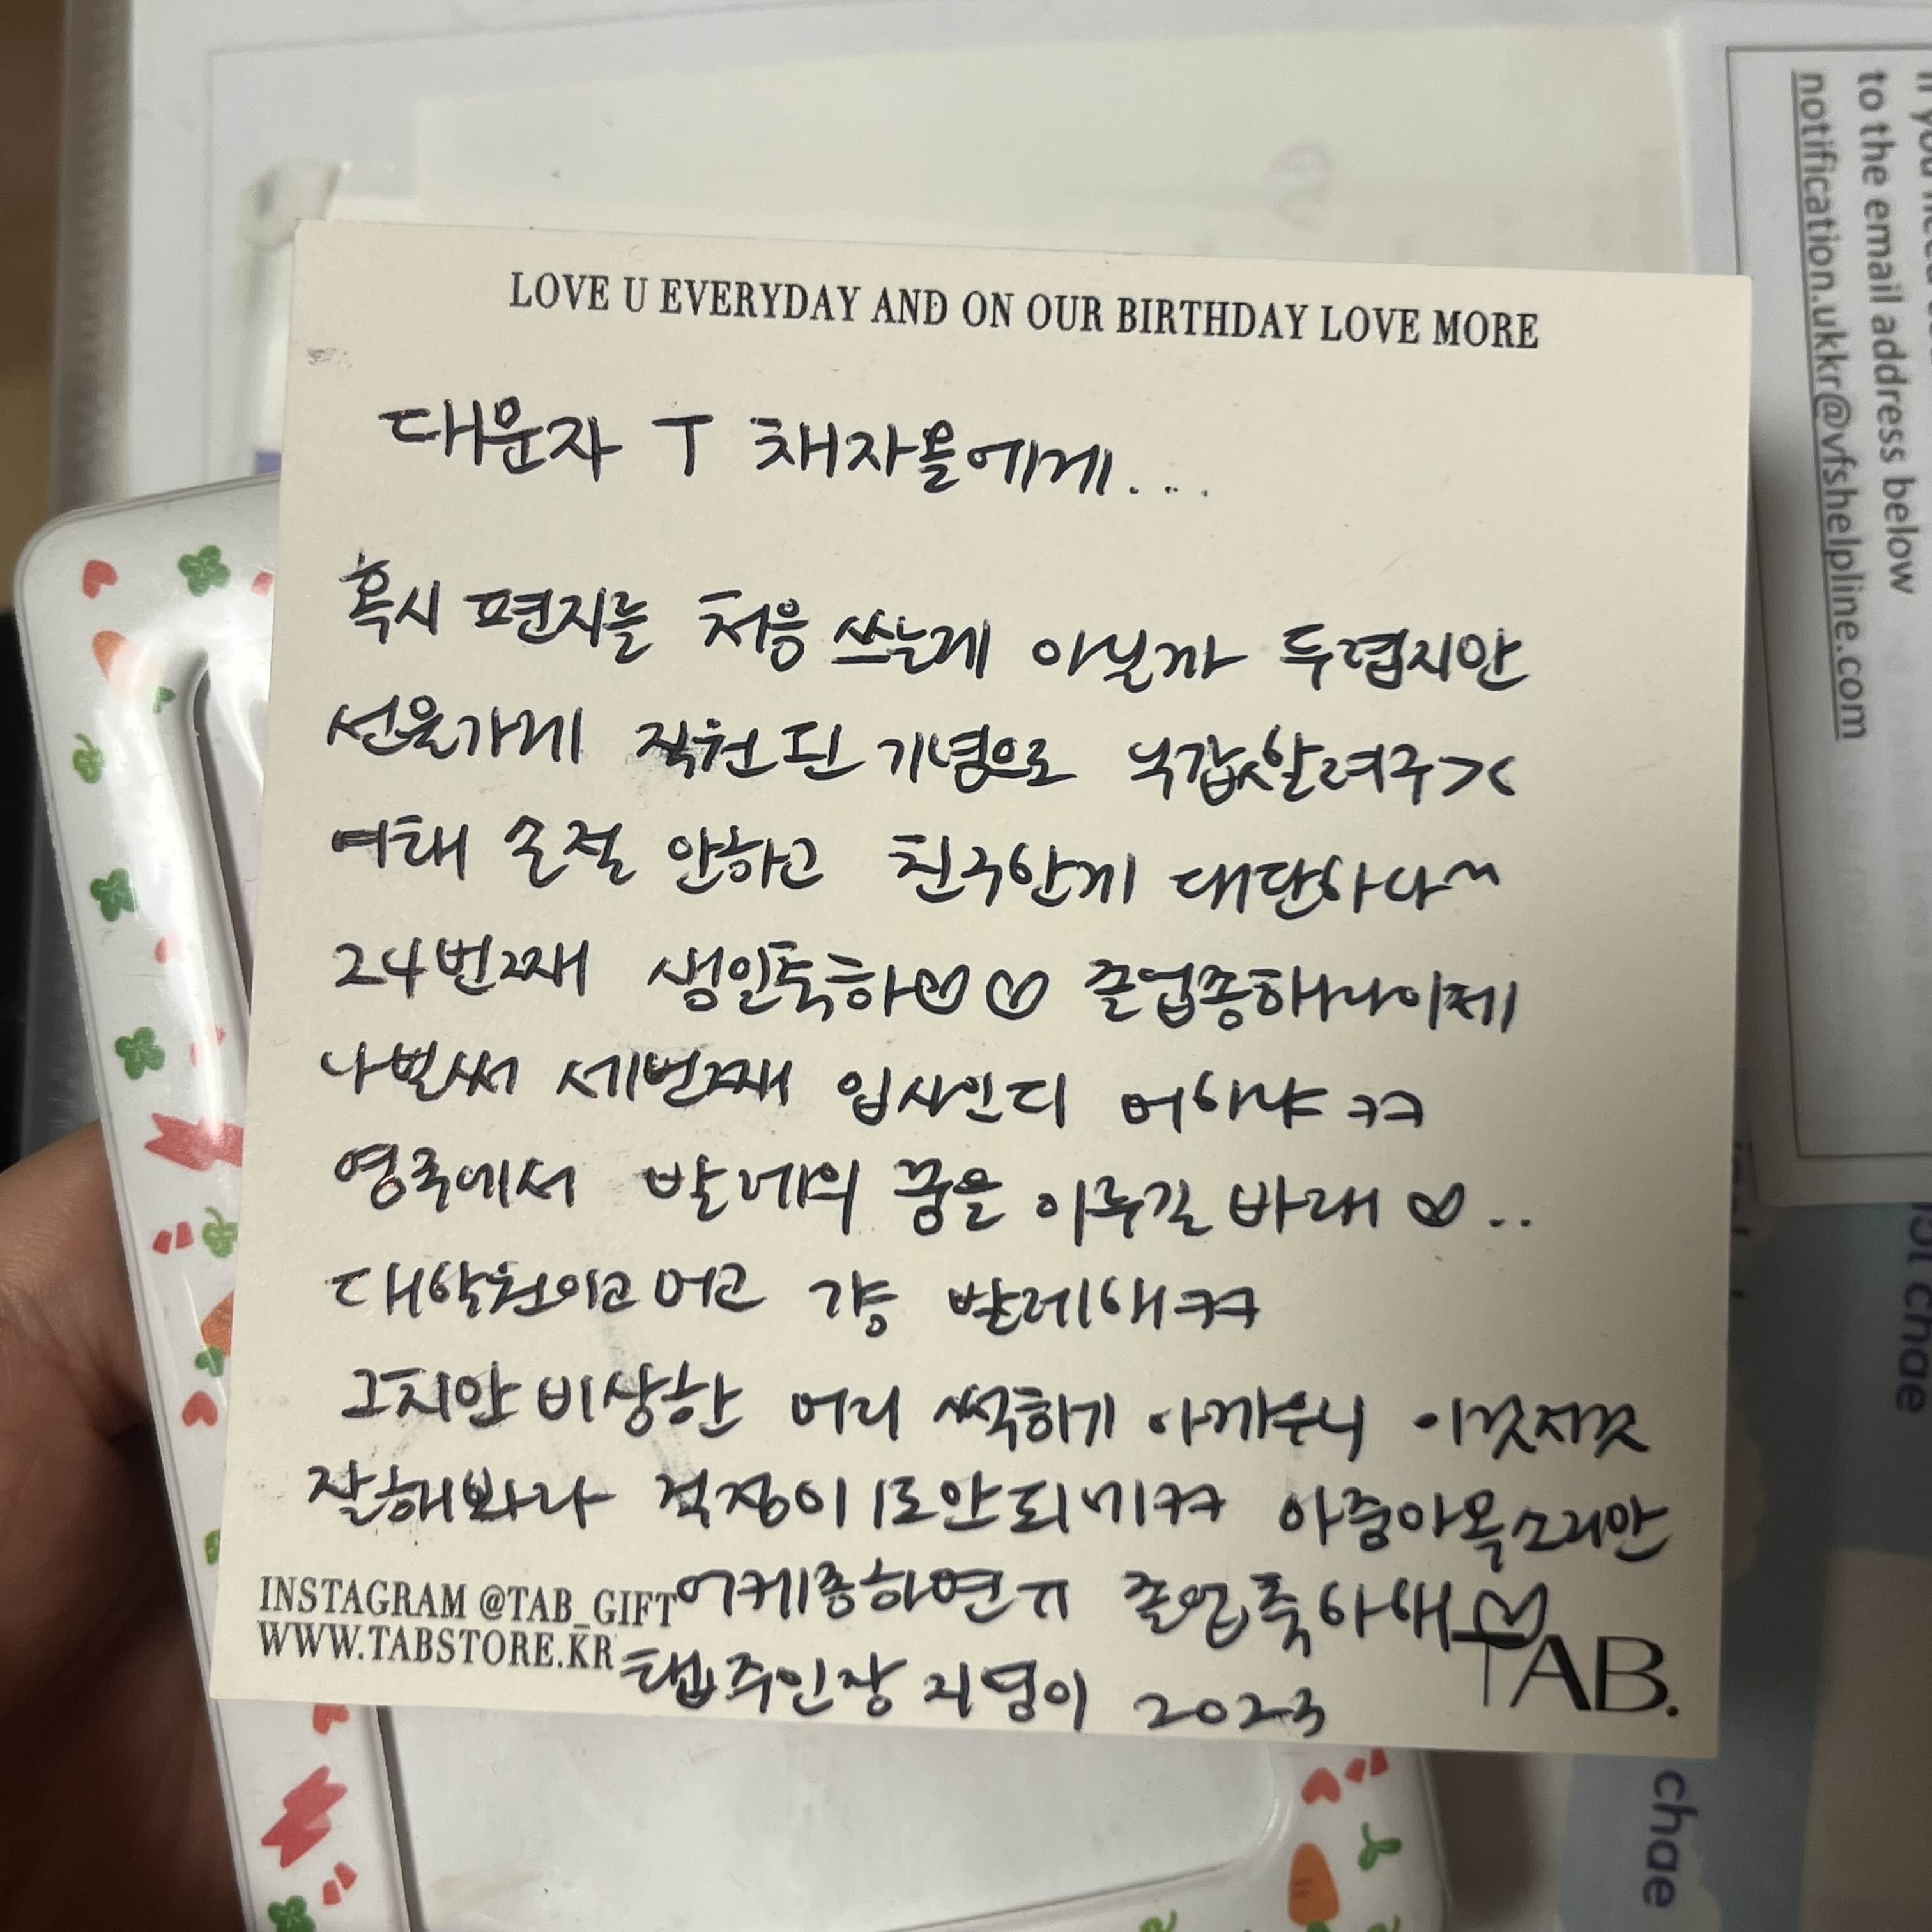 LOVE U EVERYDAY AND ON OUR BIRTHDAY LOVE MORE
대문자 T 채자믈에게...
혹시 편지를 처음 쓰는게 아닐까 두렵지만
선물가게 직원 된 기념으로 넉갑살려구><
여태 손절 안하고 친구한게 대단하다~
24번째 생일툭하♡♡ 졸업종해나이제
나벌써 세번째 입사인디 어하냐ㅋㅋ
영국에서 발레의 꿈을 이루길 바래♡..
대학원이고머고 걍 발레해ㅋㅋ
그치만 비상한 머리 썩히기 아까우니 이것저것
잘해봐라 걱정이 1도안되네ㅋㅋ 아줌마목소리만
어케좀하면ㅠ 졸업축하해♡
탭주인장 지영이 2023
INSTAGRAM @TAB_GIFT
WWW.TABSTORE.KR
TAB.
to the email address below
notification.ukkr@vfshelpline.com
chae
chae